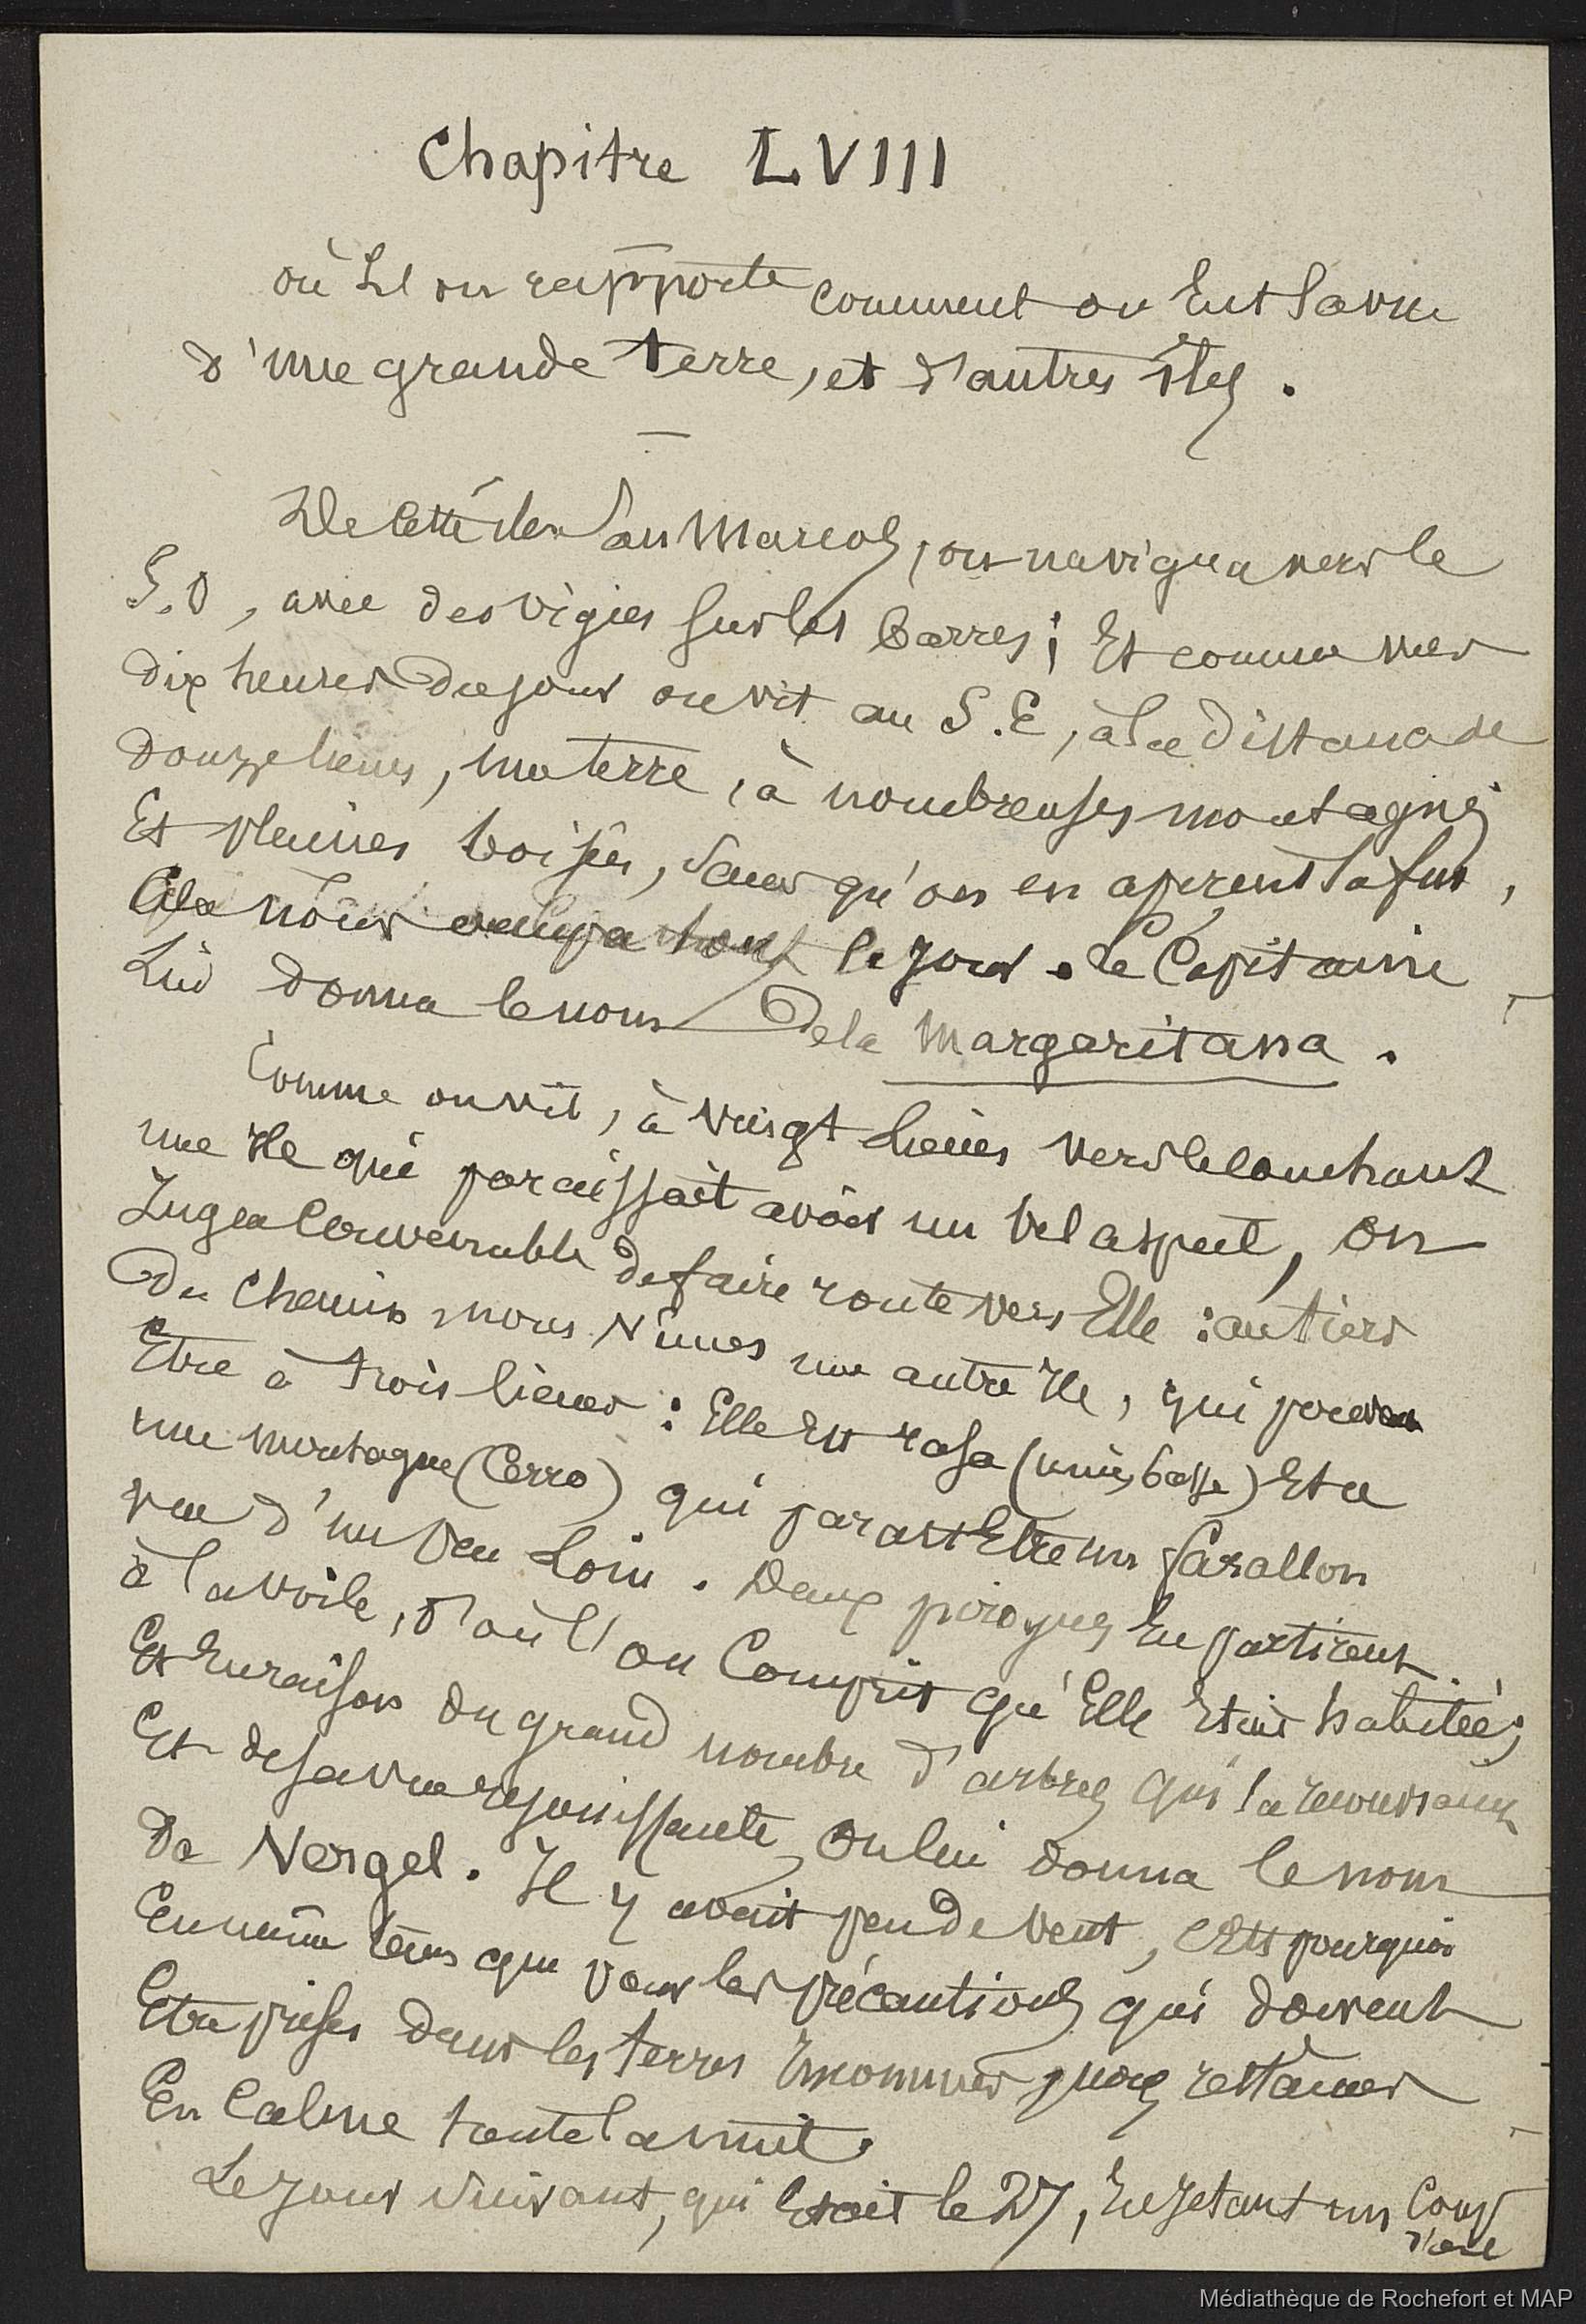 Chapitre LVIII
où l'on rapporte comment on eut la vue
d'une grande terre, et d'autres îles.
De cette île San Marcos, on navigua vers le
S.O, avec des vigies sur les barres; Et comme vers
dix heures du jour on vit au S.E, à la distance de
douze lieues, une terre, à nombreuses montagnes
Et plaines boisées, sans qu'on en aperçut la fin,
Cela nous occupa tout le jour. Le Capitaine
Lui donna le nom de la Margaritana.
Comme on vit, à vingt lieues vers le couchant
une île qui paraissait avoir un bel aspect, on
Jugea Convenable de faire route vers Elle: au tiers
Du Chemin nous vîmes une autre île, qui
Etre à trois lieues: Elle est rasa (unie, basse) Et a
une montagne (Cerro) qui parait Etre un farallon
vue d'un peu Loin. Deux pirogues En partirent
à la voile, d'où l'on Comprit qu'Elle Etait habitée;
Et En raison du grand nombre d'arbres qui la
Et de sa vue rejouissante, on lui donna le nom
de Vergel. Il y avait peu de vent, C'est pourquoi
En même tems que pour les précautions qui doivent
Etre prises dans les terres nous restâmes
En Calme toute la nuit.
Le Jour Suivant, qui Etait le 27, En Jetant un Coup
d'œil
Médiathèque de Rochefort et MAP